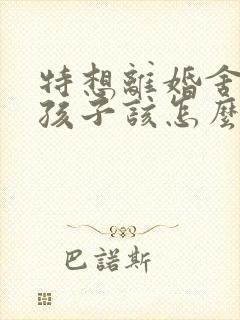 特想離婚舍
孩子該怎麼
巴諾斯